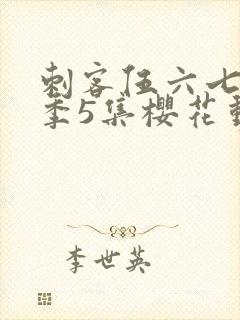 刺客伍六七
季5集樱花動
李世英